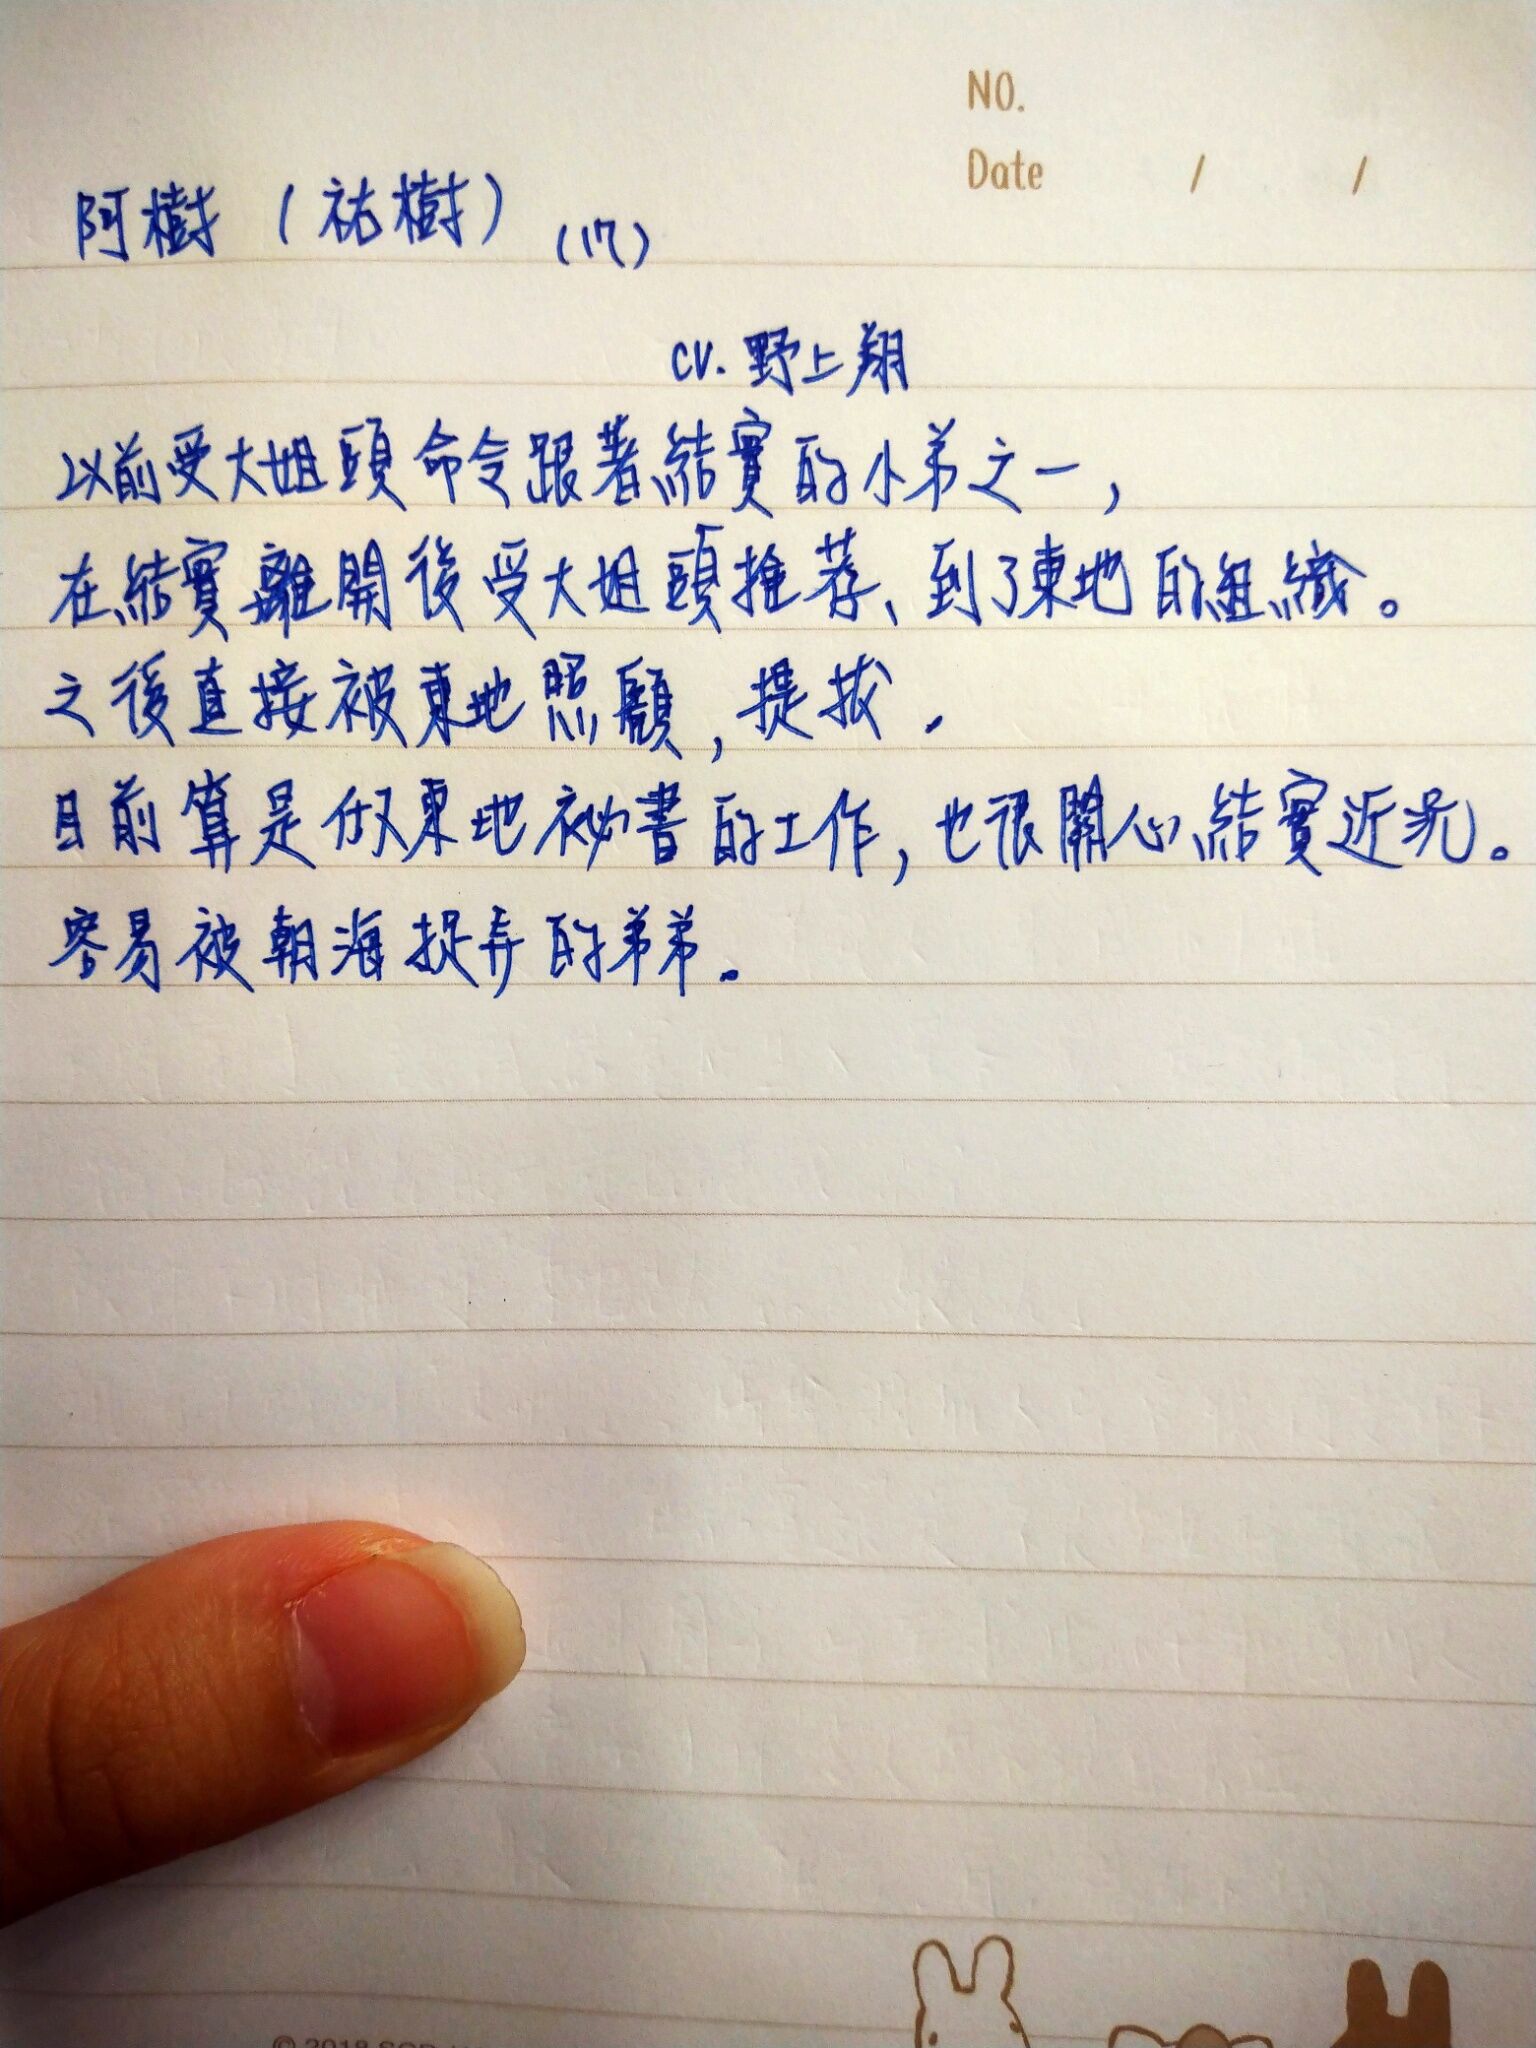 NO.
Date / /
阿樹（祐樹）(17)
cv. 野上翔
以前受大姐頭命令跟著結實的小弟之一，
在結實離開後受大姐頭推荐、到了東地的組織。
之後直接被東地照顧，提拔．
目前算是做東地祕書的工作，也很關心結實近況。
容易被朝海捉弄的弟弟。
© 2018